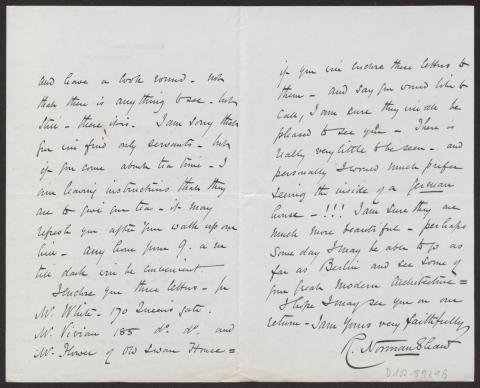 and have a look round - not
that there is anything to see - but
still - there it is. I am sorry that
you will find only servants - but
if you come about tea time - I
am leaving instructions that they
are to give you tea - it may
refresh you after your walk up our
hill - any hour from 9. a m
till dark will be convenient.
I enclose you three letters - for
Mr. White - 170 Queens gate.
Mr. Vivian 185 do. do. and
Mr. Flower of Old Swan House =
if you will enclose these letters to
them - and say you would like to
call, I am sure they will all be
pleased to see you - There is
really very little to be seen - and
personally I would much prefer
seeing the inside of a German
house - !!! I am sure they are
much more beautiful - perhaps
some day I may be able to go as
far as Berlin and see some of
your great Modern Architecture =
I hope I may see you on our
return - I am Yours very faithfully
R. Norman Shaw